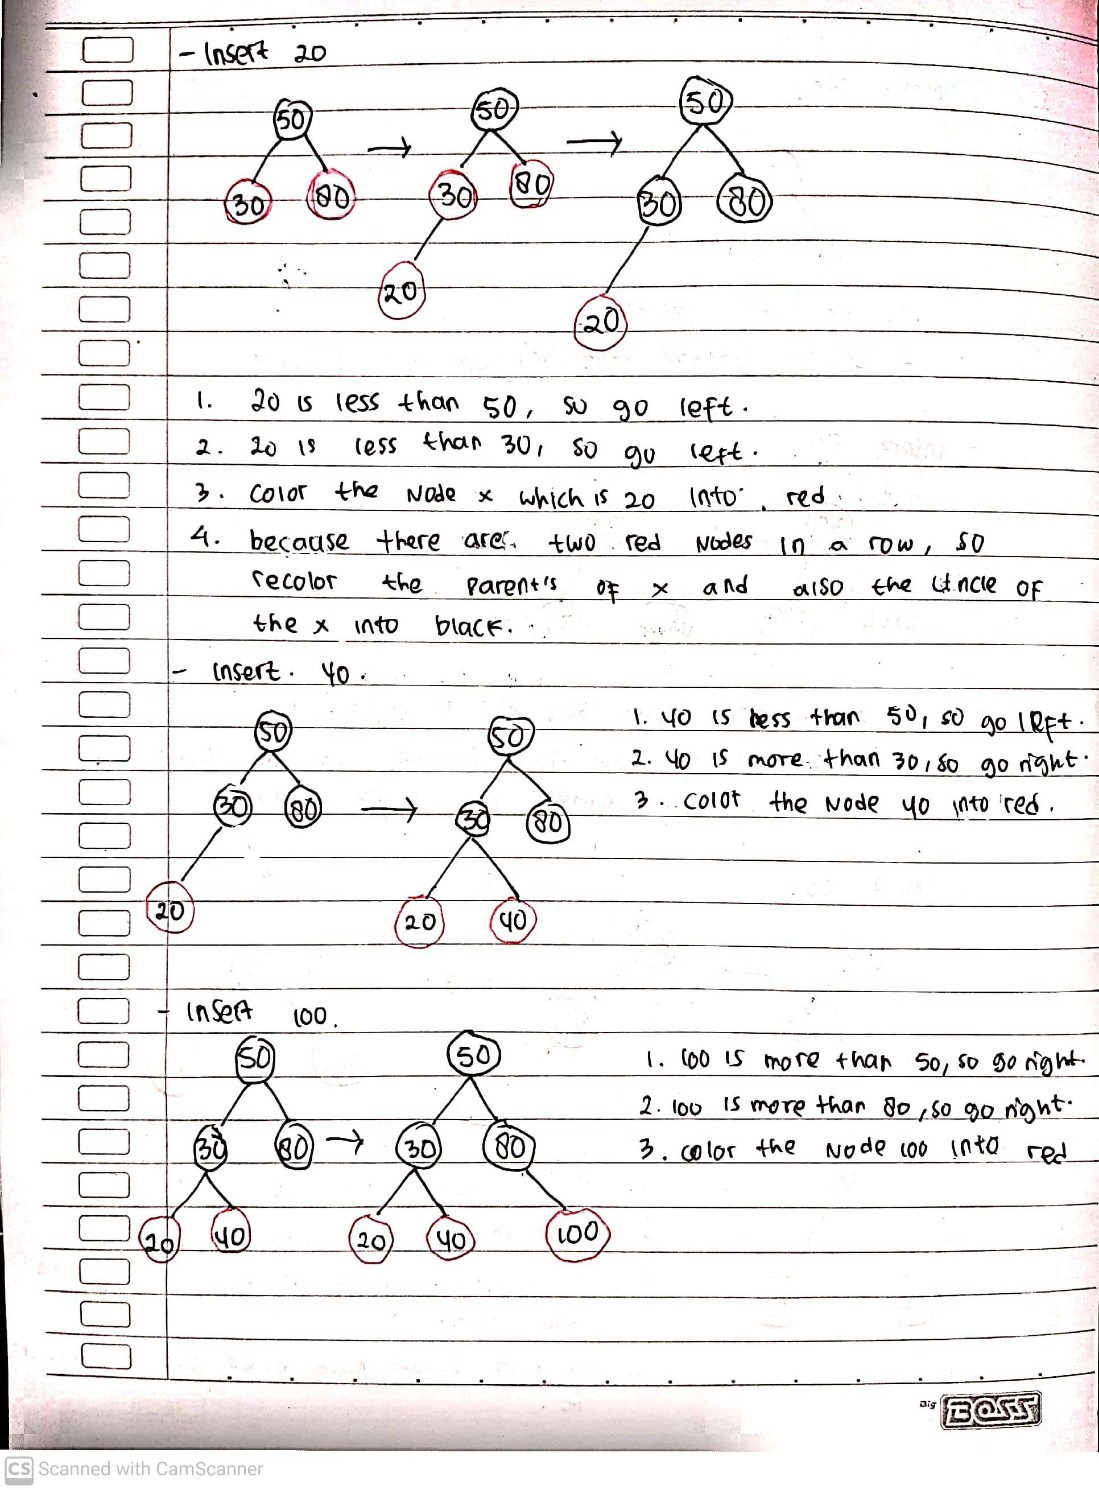 - Insert 20
50 50 50
30 80 30 80 30 80
20 20
1. 20 is less than 50, so go left.
2. 20 is less than 30, so go left.
3. color the Node x which is 20 into red.
4. because there are two red Nodes in a row, so
recolor the parent's of x and also the Uncle of
the x into black.
- Insert. 40.
50 50
30 80 30 80
20 20 40
1. 40 is less than 50, so go left.
2. 40 is more than 30, so go right.
3. color the Node 40 into red.
- Insert 100.
50 50
30 80 30 80
20 40 20 40 100
1. 100 is more than 50, so go right.
2. 100 is more than 80, so go right.
3. color the Node 100 into red
Big BOSS
CS Scanned with CamScanner